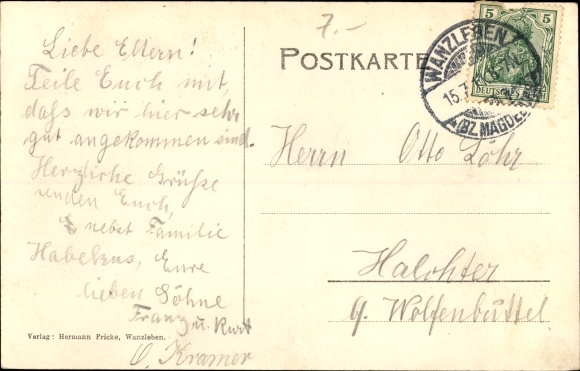 7.-
Liebe Eltern!
Teile Euch mit,
daß wir hier sehr
gut angekommen sind.
Herzliche Grüße
senden Euch,
nebst Familie
Habekus, Eure
lieben Söhne
Franz u. Kurt
O. Kramer
Verlag: Hermann Fricke, Wanzleben.
POSTKARTE
5 5
DEUTSCHES REICH
WANZLEBEN
15.7.
(BZ. MAGDEB.)
Herrn Otto Löhr
Halchter
b. Wolfenbüttel